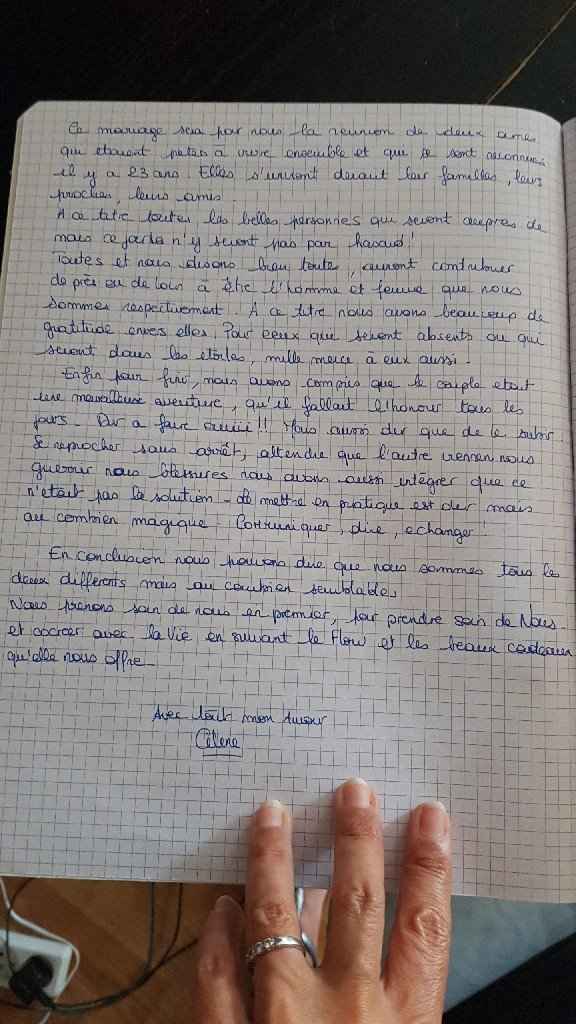 Ce mariage sera pour nous la reunion de deux ames
qui etaient pretes à vivre ensemble et que se sont reconnues
il y a 23 ans. Elles s'uniront devant leur familles, leurs
proches, leurs amis.
A ce titre toutes les belles personnes qui seront aupres de
nous ce jour là n'y seront pas par hasard!
Toutes et nous disons bien toute, auront contribuer
de près ou de loin à être l'homme et femme que nous
sommes respectivement. A ce titre nous avons beaucoup de
gratitude envers elles. Pour ceux que seront absents ou qui
seront dans les etoiles, mille merci à eux aussi.
Enfin pour finir, nous avons compris que le couple etait
une merveilleuse aventure, qu'il fallait l'honorer tous les
jours. Dur a faire aussi!! Mais aussi dur que de le subir.
Se reprocher sans arrêt, attendre que l'autre vienne nous
guerrir nous blessures nous avons aussi intégrer que ce
n'etait pas la solution - le mettre en pratique est dur mais
au combien magique. Communiquer, dire, echanger!
En conclusion nous pouvons dire que nous sommes tous les
deux differents mais au combien semblables
Nous prenons soin de nous en premier, pour prendre soin de Nous.
et cocréer avec la Vie en suivant le Flow et les beaux cadeaux
qu'elle nous offre -
Avec tout mon Amour
Celene